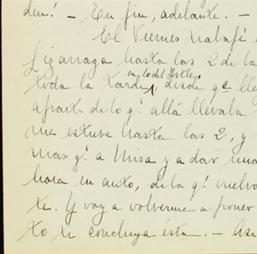 den! – En fin, adelante. –
El Viernes trabajé
Lizarraga hasta las 2 de la
toda la tarde, desde qe. lle
aparte de lo q! allá llevaba
me estuve hasta las 2, y
mas q! a Misa y a dar una
hora en auto, de la q! vuelvo
te. Y voy a volverme a poner
to te concluya ésta. – Asi